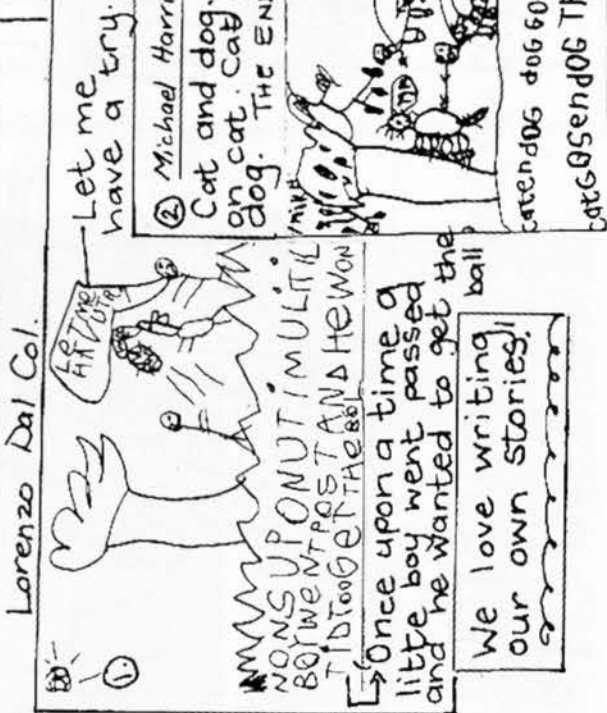 Lorenzo Dal Col.
①
LeT me
HAV UTRY
Let me
have a try.
NONSUPONUTIMULITIL
BOYWENTPOSTANDHEWON
TIDTooGeTTHEBO
Once upon a time a
litte boy went passed
and he wanted to get the
ball
We love writing
our own stories!
② Michael Harri
Cat and dog.
on cat. Cat
dog. THE END
catendOG dOG GO
catGOSendOG TH